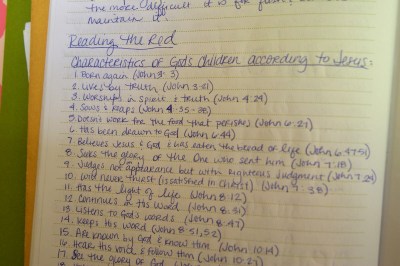 the more difficult it is for
maintain it.
Reading the Red
Characteristics of God's Children according to Jesus:
1. Born again (John 3:3)
2. Lives by truth (John 3:21)
3. Worships in spirit & truth (John 4:24)
4. Sows & reaps (John 4:35-38)
5. Doesn't work for the food that perishes (John 6:27)
6. Has been drawn to God (John 6:44)
7. Believes Jesus & God & has eaten the bread of life (John 6:47-51)
8. Seeks the glory of the One who sent him (John 7:18)
9. Judges not appearance but with righteous judgment (John 7:24)
10. Will never thirst (is satisfied in Christ) (John 7:38)
11. Has the light of life (John 8:12)
12. Continues in the Word (John 8:31)
13. Listens to God's words (John 8:47)
14. Keeps His word (John 8:51,52)
15. Are known by God & know Him (John 10:14)
16. Hear His voice & follow Him (John 10:27)
17. See the glory of God